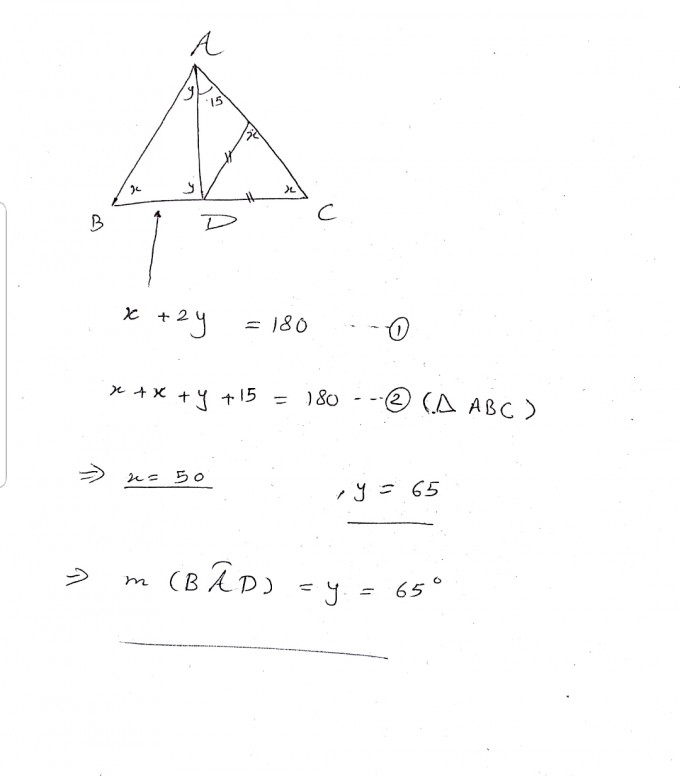 A
y 15
x
x y x
B D C
x + 2y = 180 ---①
x + x + y + 15 = 180 ---② (Δ ABC)
⇒ x = 50 , y = 65
⇒ m (BÂD) = y = 65°